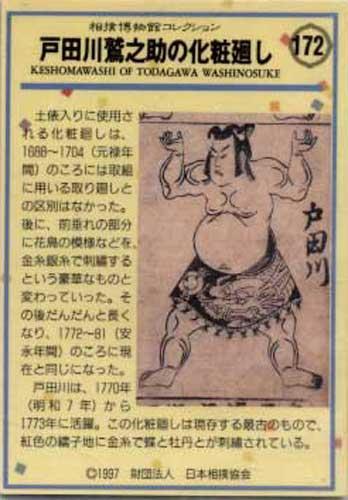 相撲博物館コレクション
戸田川鷲之助の化粧廻し
172
KESHOMAWASHI OF TODAGAWA WASHINOSUKE
土俵入りに使用さ
れる化粧廻しは、
1688〜1704(元禄年
間)のころには取組
に用いる取り廻しと
の区別はなかった。
後に、前垂れの部分
に花鳥の模様などを、
金糸銀糸で刺繍する
という豪華なものと
変わっていった。そ
の後だんだんと長く
なり、1772〜81(安
永年間)のころに現
在と同じになった。
戸田川は、1770年
(明和7年)から
1773年に活躍。この化粧廻しは現存する最古のもので、
紅色の繻子地に金糸で蝶と牡丹とが刺繍されている。
戸田川
©1997 財団法人 日本相撲協会